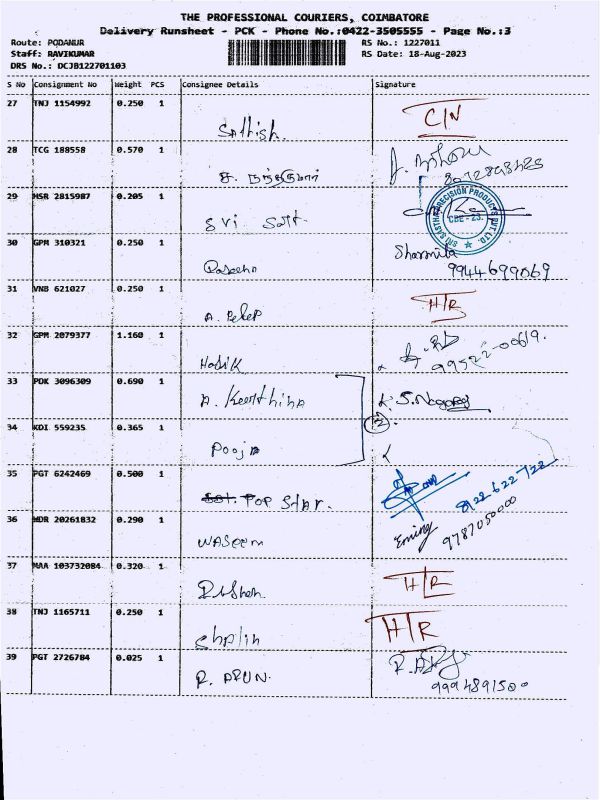 THE PROFESSIONAL COURIERS, COIMBATORE
Delivery Runsheet - PCK - Phone No.:0422-3505555 - Page No.:3
Route: PODANUR RS No.: 1227011
Staff: RAVIKUMAR RS Date: 18-Aug-2023
DRS No.: DCJB122701103
S No Consignment No Weight PCS Consignee Details Signature
27 TNJ 1154992 0.250 1
Sathish. C/N
28 TCG 188558 0.570 1
29 MSR 2815987 0.205 1
Sri Satt.
SRI SASTHA PRECISION PRODUCTS PVT. LTD.
CBE - 23.
30 GPM 310321 0.250 1
Sharmila
9944699069
31 VNB 621027 0.250 1
H/R
32 GPM 2079377 1.160 1
Hadik
99522-00619.
33 PDK 3096309 0.690 1
A. Keerthina
S. Nagaraj
2
34 KDI 559235 0.365 1
Pooja
35 PGT 6242469 0.500 1
Pop Star.
8122-622 722
36 HDR 20261832 0.290 1
Waseem
9787050000
37 MAA 103732084 0.320 1
H/R
38 TNJ 1165711 0.250 1
Shalin H/R
39 PGT 2726784 0.025 1
R. ARUN.
9994891500